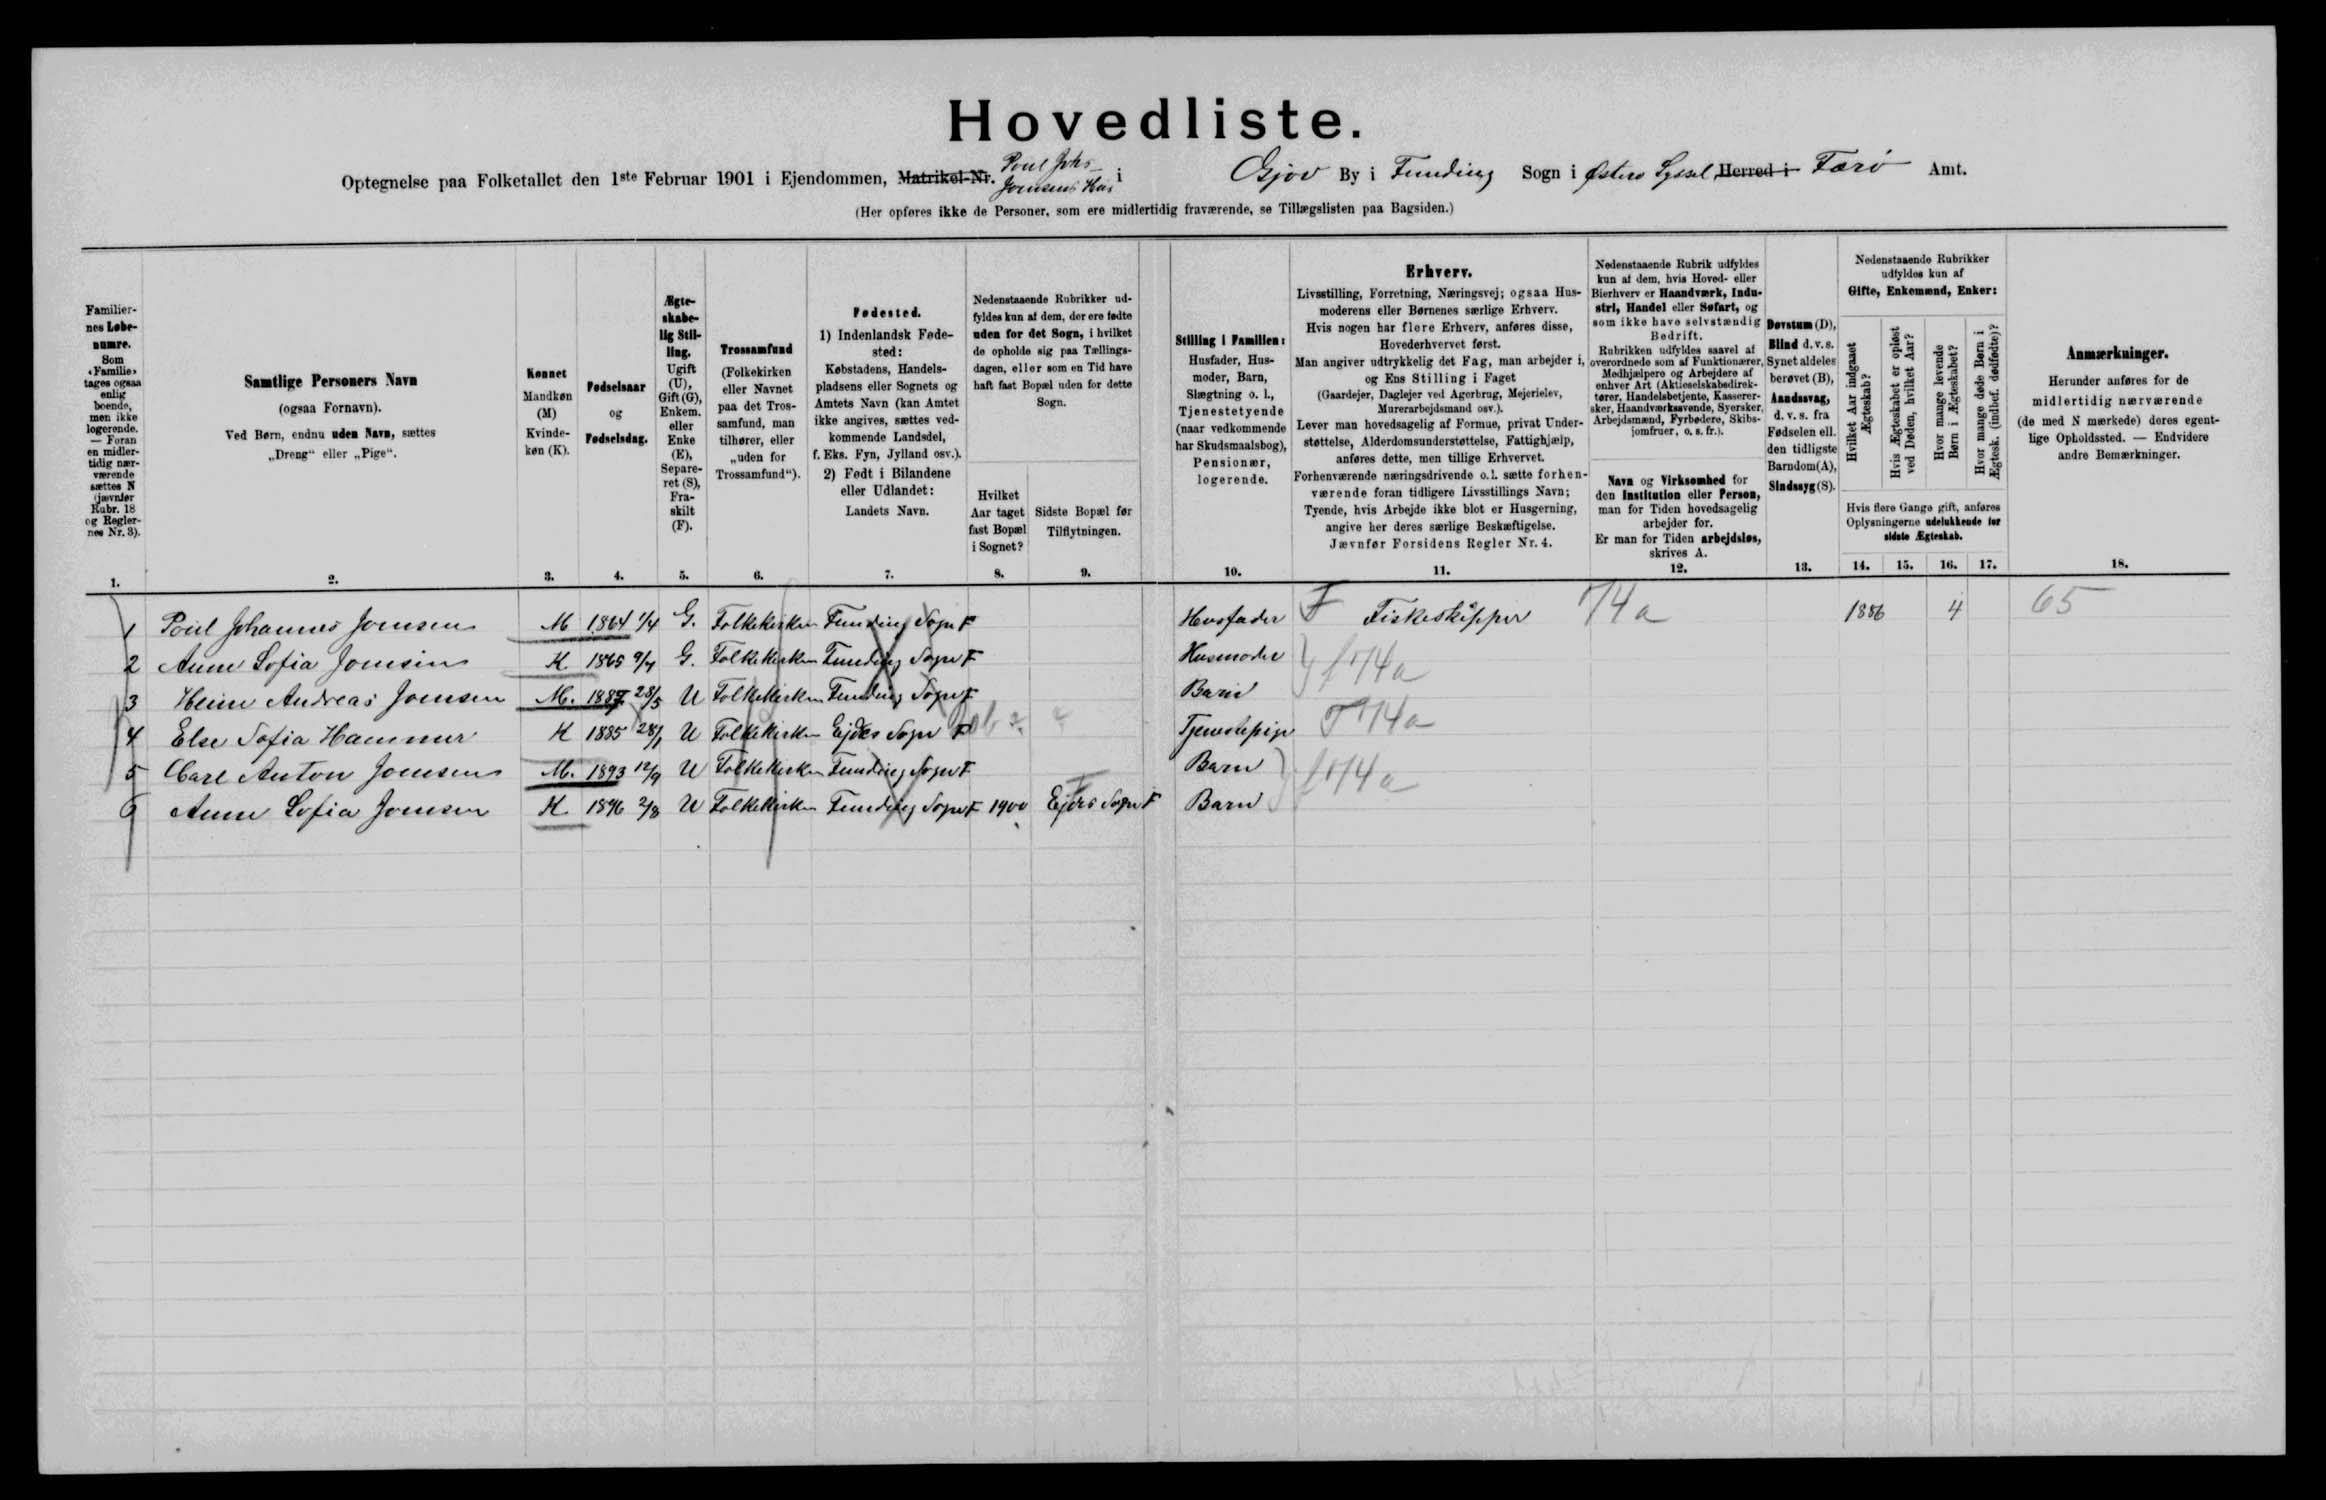 Hovedliste.
Optegnelse paa Folketallet den 1ste Februar 1901 i Ejendommen, Matrikel-Nr. Poul Johs Joensens Hus i Gjov By i Funding Sogn i Østerø Syssel Herred i Færø Amt.
(Her opføres ikke de Personer, som ere midlertidig fraværende, se Tillægslisten paa Bagsiden.)
Familiernes Løbenumre.
Som «Familie» tages ogsaa enlig boende, men ikke logerende. — Foran en midlertidig nærværende sættes N (jævnfør Rubr. 18 og Reglernes Nr. 3).
1.
Samtlige Personers Navn
(ogsaa Fornavn).
Ved Børn, endnu uden Navn, sættes
„Dreng“ eller „Pige“.
2.
Kønnet
Mandkøn (M)
Kvindekøn (K).
3.
Fødselsaar
og
Fødselsdag.
4.
Ægteskabelig Stilling.
Ugift (U), Gift (G), Enkem. eller Enke (E), Separeret (S), Fraskilt (F).
5.
Trossamfund
(Folkekirken eller Navnet paa det Trossamfund, man tilhører, eller „uden for Trossamfund“).
6.
Fødested.
1) Indenlandsk Fødested:
Købstadens, Handelspladsens eller Sognets og Amtets Navn (kan Amtet ikke angives, sættes vedkommende Landsdel, f. Eks. Fyn, Jylland osv.).
2) Født i Bilandene eller Udlandet:
Landets Navn.
7.
Nedenstaaende Rubrikker udfyldes kun af dem, der ere fødte uden for det Sogn, i hvilket de opholde sig paa Tællingsdagen, eller som en Tid have haft fast Bopæl uden for dette Sogn.
Hvilket Aar taget fast Bopæl i Sognet?
8.
Sidste Bopæl før Tilflytningen.
9.
Stilling i Familien:
Husfader, Husmoder, Barn, Slægtning o. l., Tjenestetyende (naar vedkommende har Skudsmaalsbog), Pensionær, logerende.
10.
Erhverv.
Livsstilling, Forretning, Næringsvej; ogsaa Husmoderens eller Børnenes særlige Erhverv.
Hvis nogen har flere Erhverv, anføres disse, Hovederhvervet først.
Man angiver udtrykkelig det Fag, man arbejder i, og Ens Stilling i Faget
(Gaardejer, Daglejer ved Agerbrug, Mejerielev, Murerarbejdsmand osv.).
Lever man hovedsagelig af Formue, privat Understøttelse, Alderdomsunderstøttelse, Fattighjælp, anføres dette, men tillige Erhvervet.
Forhenværende næringsdrivende o. l. sætte forhenværende foran tidligere Livsstillings Navn;
Tyende, hvis Arbejde ikke blot er Husgerning, angive her deres særlige Beskæftigelse.
Jævnfør Forsidens Regler Nr. 4.
11.
Nedenstaaende Rubrik udfyldes kun af dem, hvis Hoved- eller Bierhverv er Haandværk, Industri, Handel eller Søfart, og som ikke have selvstændig Bedrift.
Rubrikken udfyldes saavel af overordnede som af Funktionærer, Medhjælpere og Arbejdere af enhver Art (Aktieselskabsdirektører, Handelsbetjente, Kasserersker, Haandværkssvende, Syersker, Arbejdsmænd, Fyrbødere, Skibsjomfruer, o. s. fr.).
Navn og Virksomhed for den Institution eller Person, man for Tiden hovedsagelig arbejder for.
Er man for Tiden arbejdsløs, skrives A.
12.
Døvstum (D), Blind d. v. s. Synet aldeles berøvet (B), Aandssvag, d. v. s. fra Fødselen ell. den tidligste Barndom (A), Sindssyg (S).
13.
Nedenstaaende Rubrikker udfyldes kun af
Gifte, Enkemænd, Enker:
Hvilket Aar indgaaet Ægteskab?
Hvis Ægteskabet er opløst ved Døden, hvilket Aar?
Hvor mange levende Børn i Ægteskabet?
Hvor mange døde Børn i Ægtesk. (indbef. dødfødte)?
Hvis flere Gange gift, anføres Oplysningerne udelukkende for sidste Ægteskab.
14. 15. 16. 17.
Anmærkninger.
Herunder anføres for de midlertidig nærværende (de med N mærkede) deres egentlige Opholdssted. — Endvidere andre Bemærkninger.
18.
1 Poul Johannes Joensen M 1864 1/4 G. Folkekirken Funding Sogn F Husfader F Fiskeskipper 74a 1886 4 65
2 Anne Sofia Joensen K 1865 9/4 G. Folkekirken Funding Sogn F Husmoder f 74a
3 Heine Andreas Joensen M. 1887 28/5 U Folkekirken Funding Sogn F Barn
4 Else Sofia Hammer K 1885 28/1 U Folkekirken Ejdes Sogn F Tjenestepige T 74a
5 Carl Anton Joensen M. 1893 12/9 U Folkekirken Funding Sogn F Barn f 74a
6 Anne Sofia Joensen K 1896 2/8 U Folkekirken Funding Sogn F 1900 Ejdes Sogn F Barn